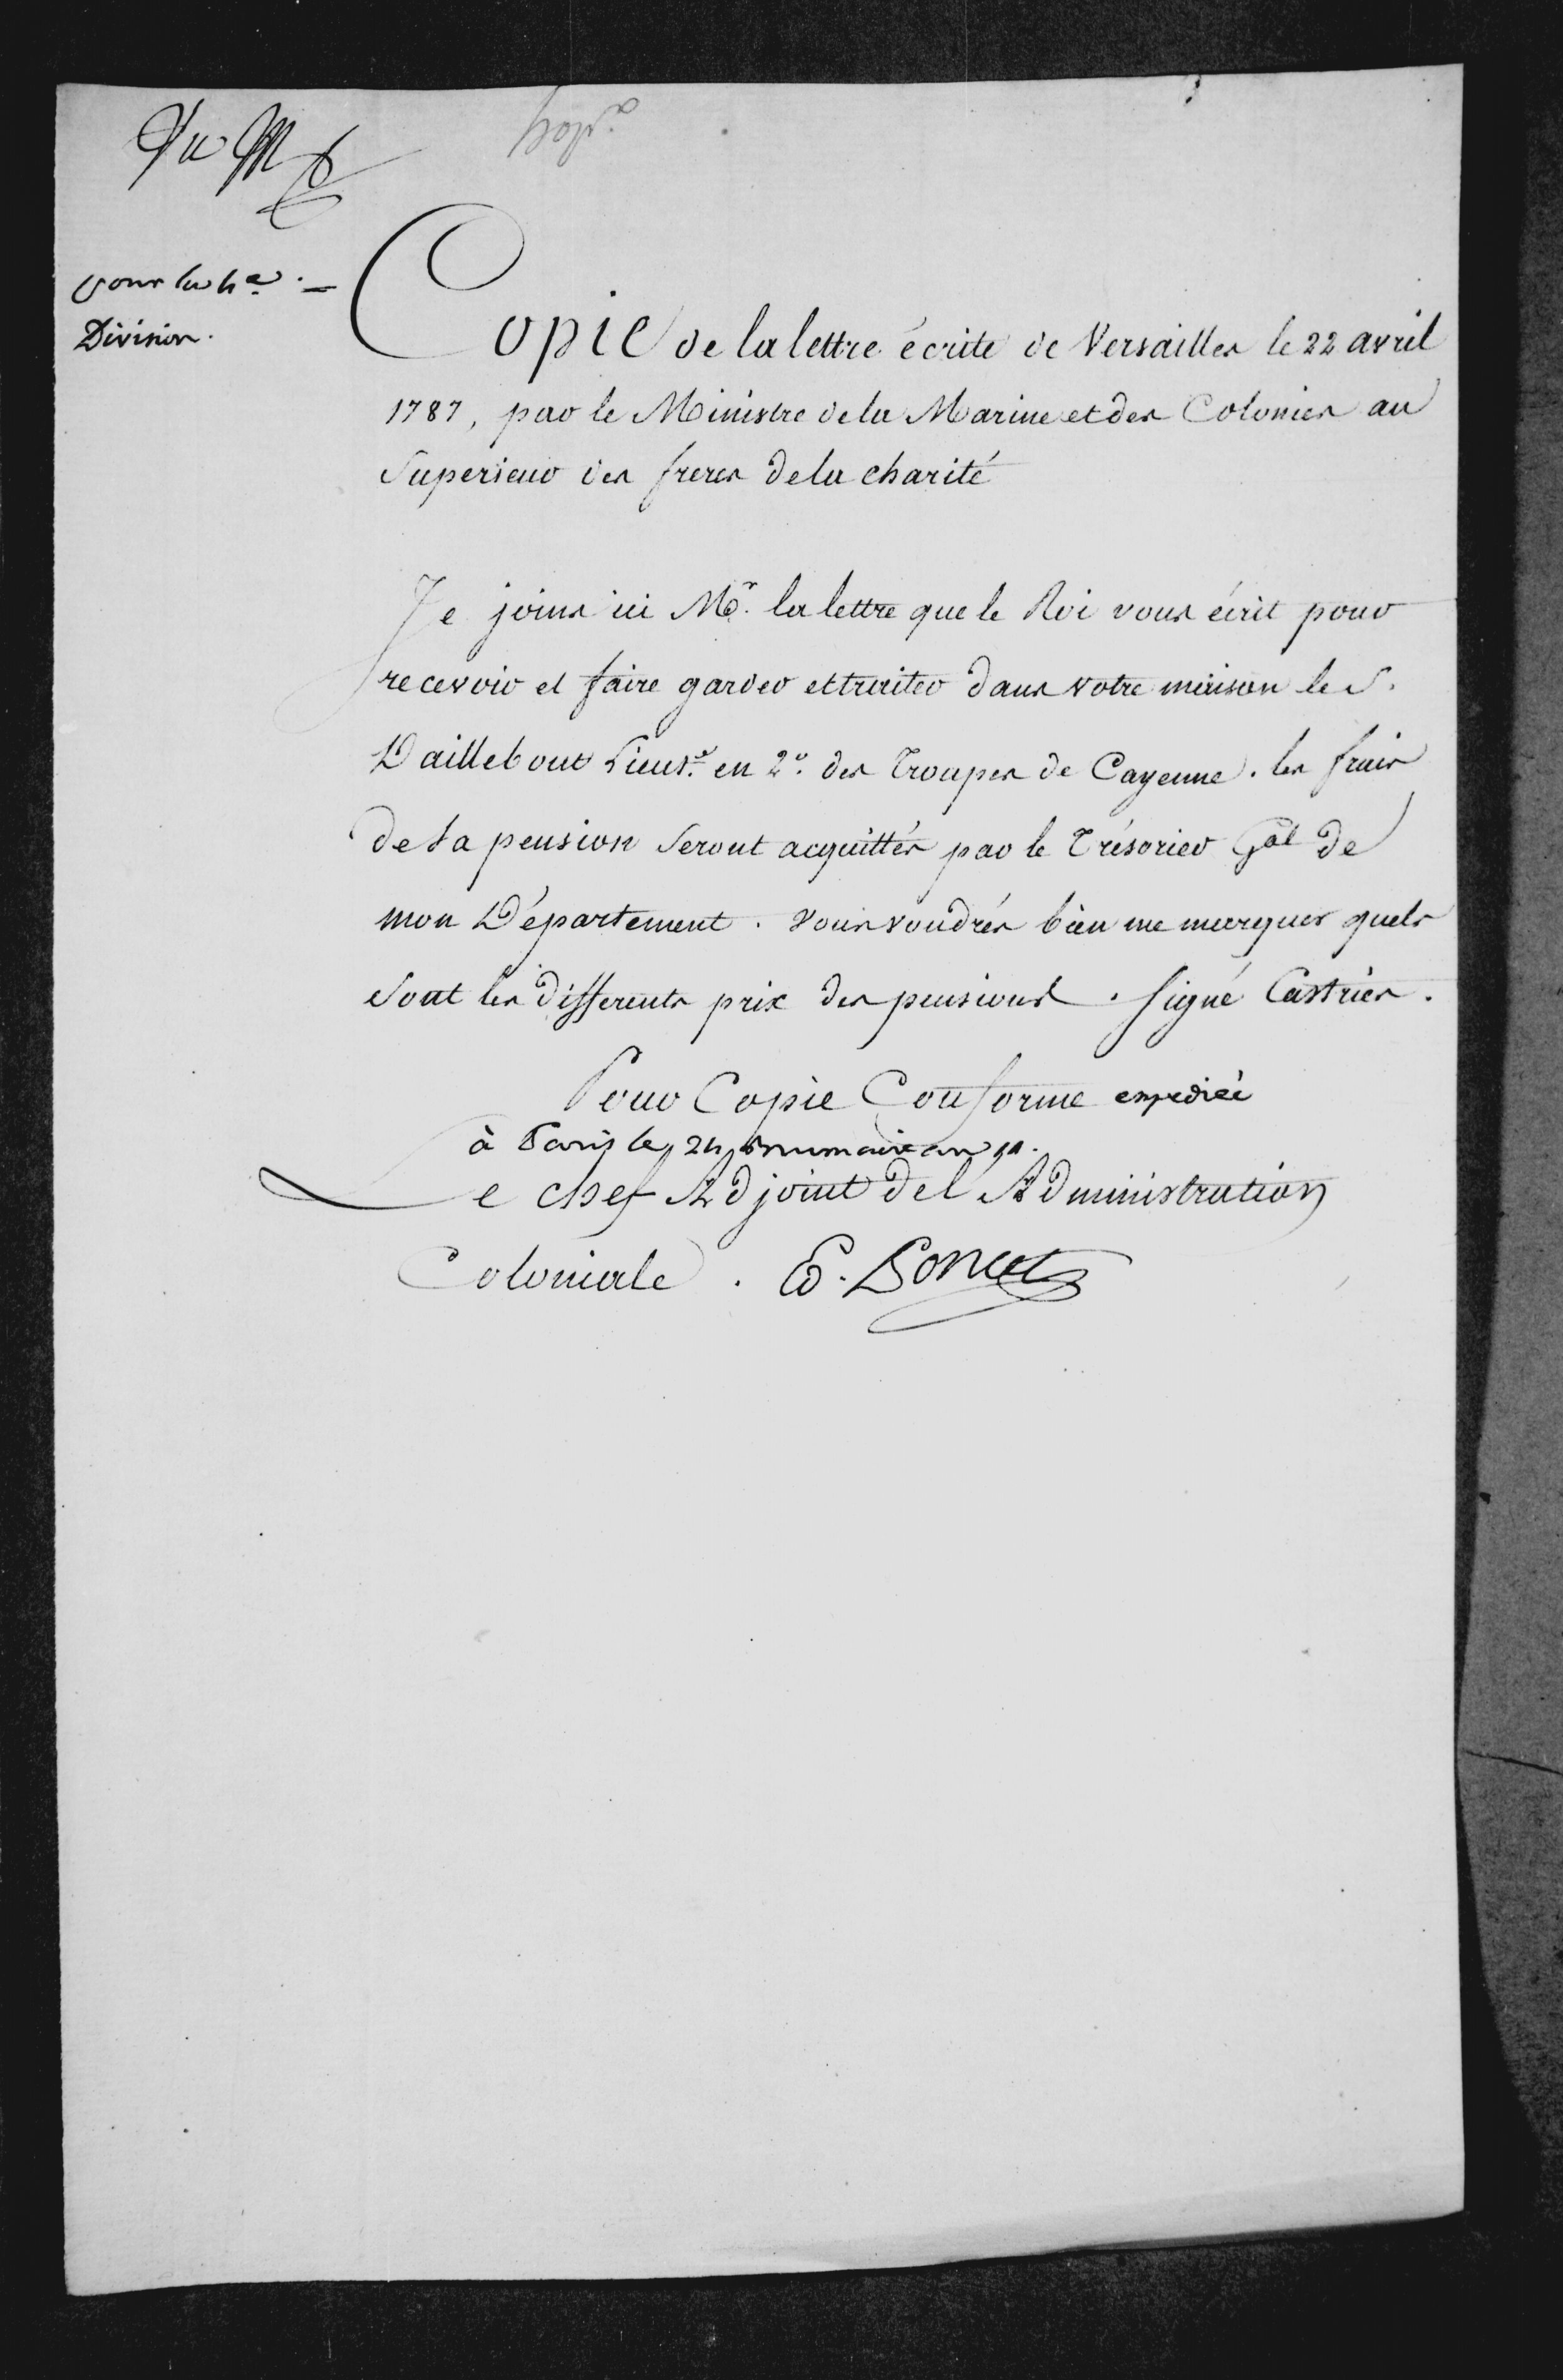 pour la 4e
Division.
Copie de la lettre écrite de Versailles le 22 avril
1787, par le Ministre de la Marine et des Colonies au
Superieur des freres de la charité
Je joins ici Mr. la lettre que le Roi vous écrit pour
recevoir et faire garder et traiter dans votre maison le S.
Daillebout Lieut. en 2e. des Troupes de Cayenne. les frais
de sa pension seront acquittés par le Trésorier Gal de
mon Département. vous voudrés bien me marquer quels
sont les differents prix des pensions. signé Castries.
Pour Copie Conforme expediée
à Paris le 24 Brumaire an 11.
Le chef Adjoint de l'Administration
Coloniale. E. Poncet